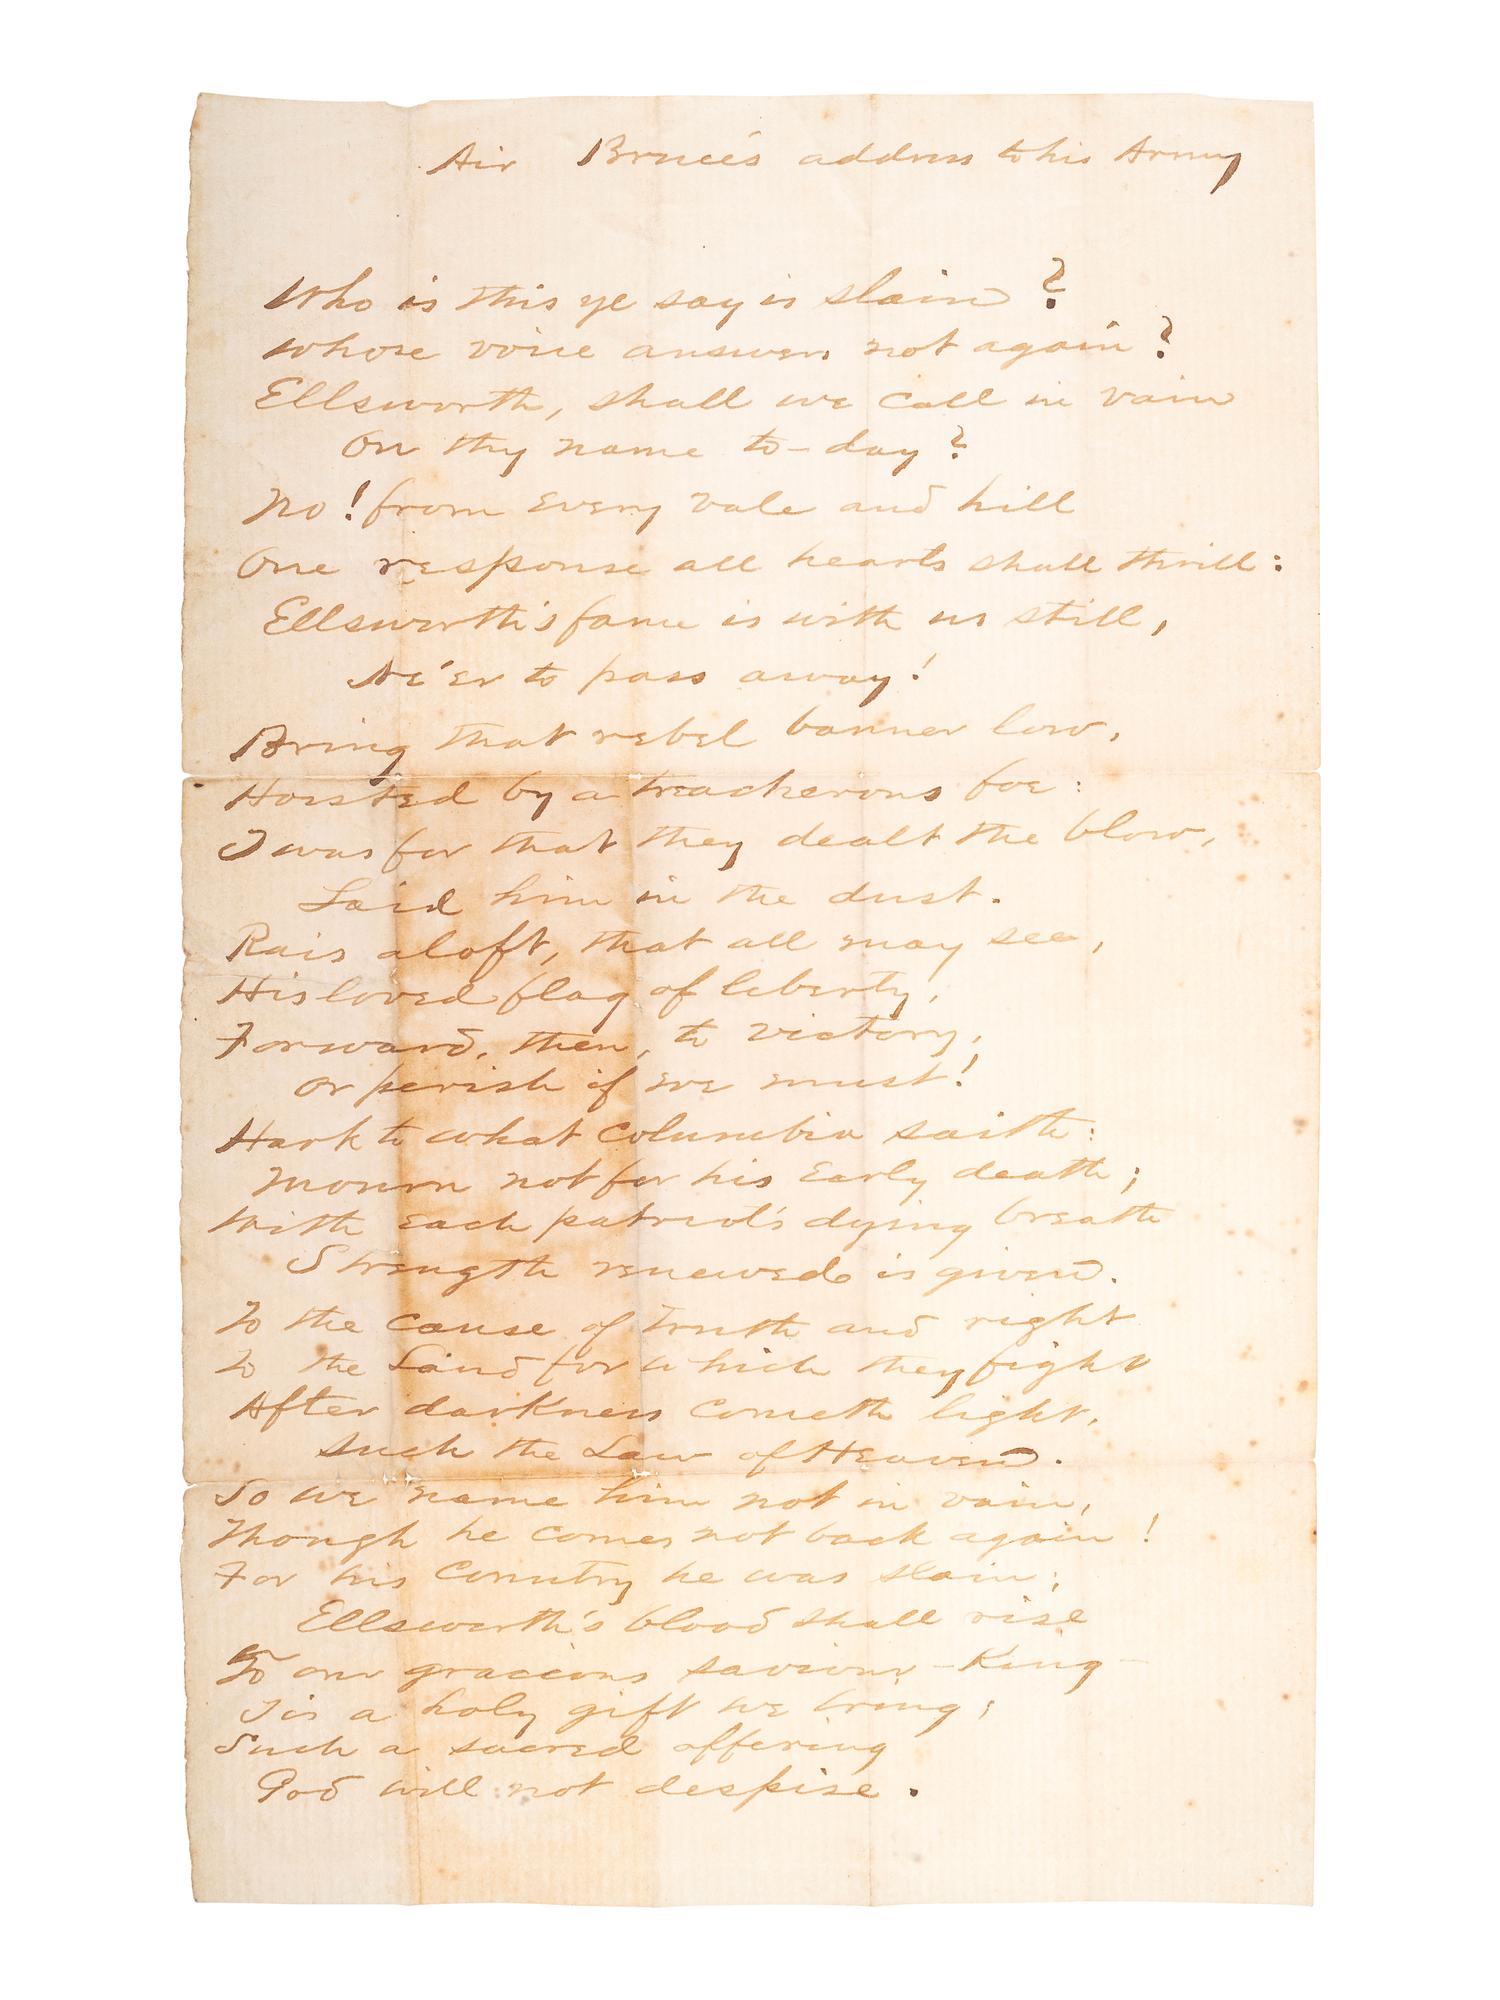 Air Bruce's address to his Army
Who is this ye say is slain?
Whose voice answers not again?
Ellsworth, shall we call in vain
On thy name to-day?
No! from every vale and hill
One response all hearts shall thrill:
Ellsworth's fame is with us still,
Ne'er to pass away!
Bring that rebel banner low,
Hoisted by a treacherous foe:
Twas for that they dealt the blow,
Laid him in the dust.
Rais aloft, that all may see,
His loved flag of liberty,
Forward, then, to victory,
Or perish if we must!
Hark to what Columbia saith:
Mourn not for his early death;
With each patriot's dying breath
Strength renewed is given.
To the cause of truth and right
To the Land for which they fight
After darkness cometh light,
Such the Law of Heaven.
So we name him not in vain,
Though he comes not back again!
For his Country he was slain;
Ellsworth's blood shall rise
To our gracious saviour-King-
Tis a holy gift we bring;
Such a sacred offering
God will not despise.